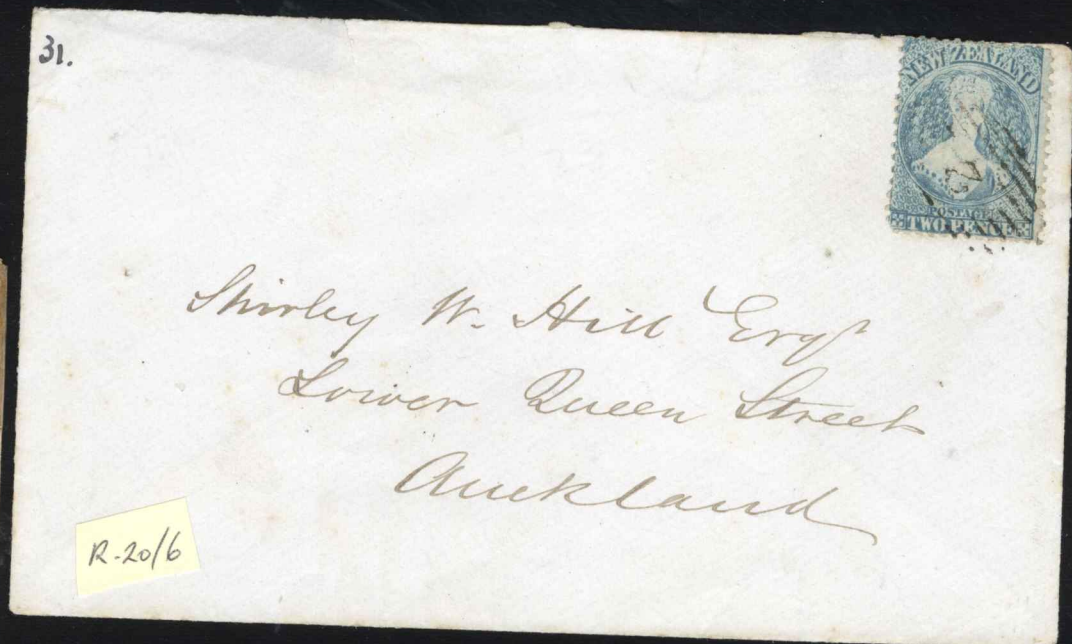 31.
NEW ZEALAND
POSTAGE
TWO PENCE
Shirley W. Hill Esqr
Lower Queen Street
Auckland
R-20/6